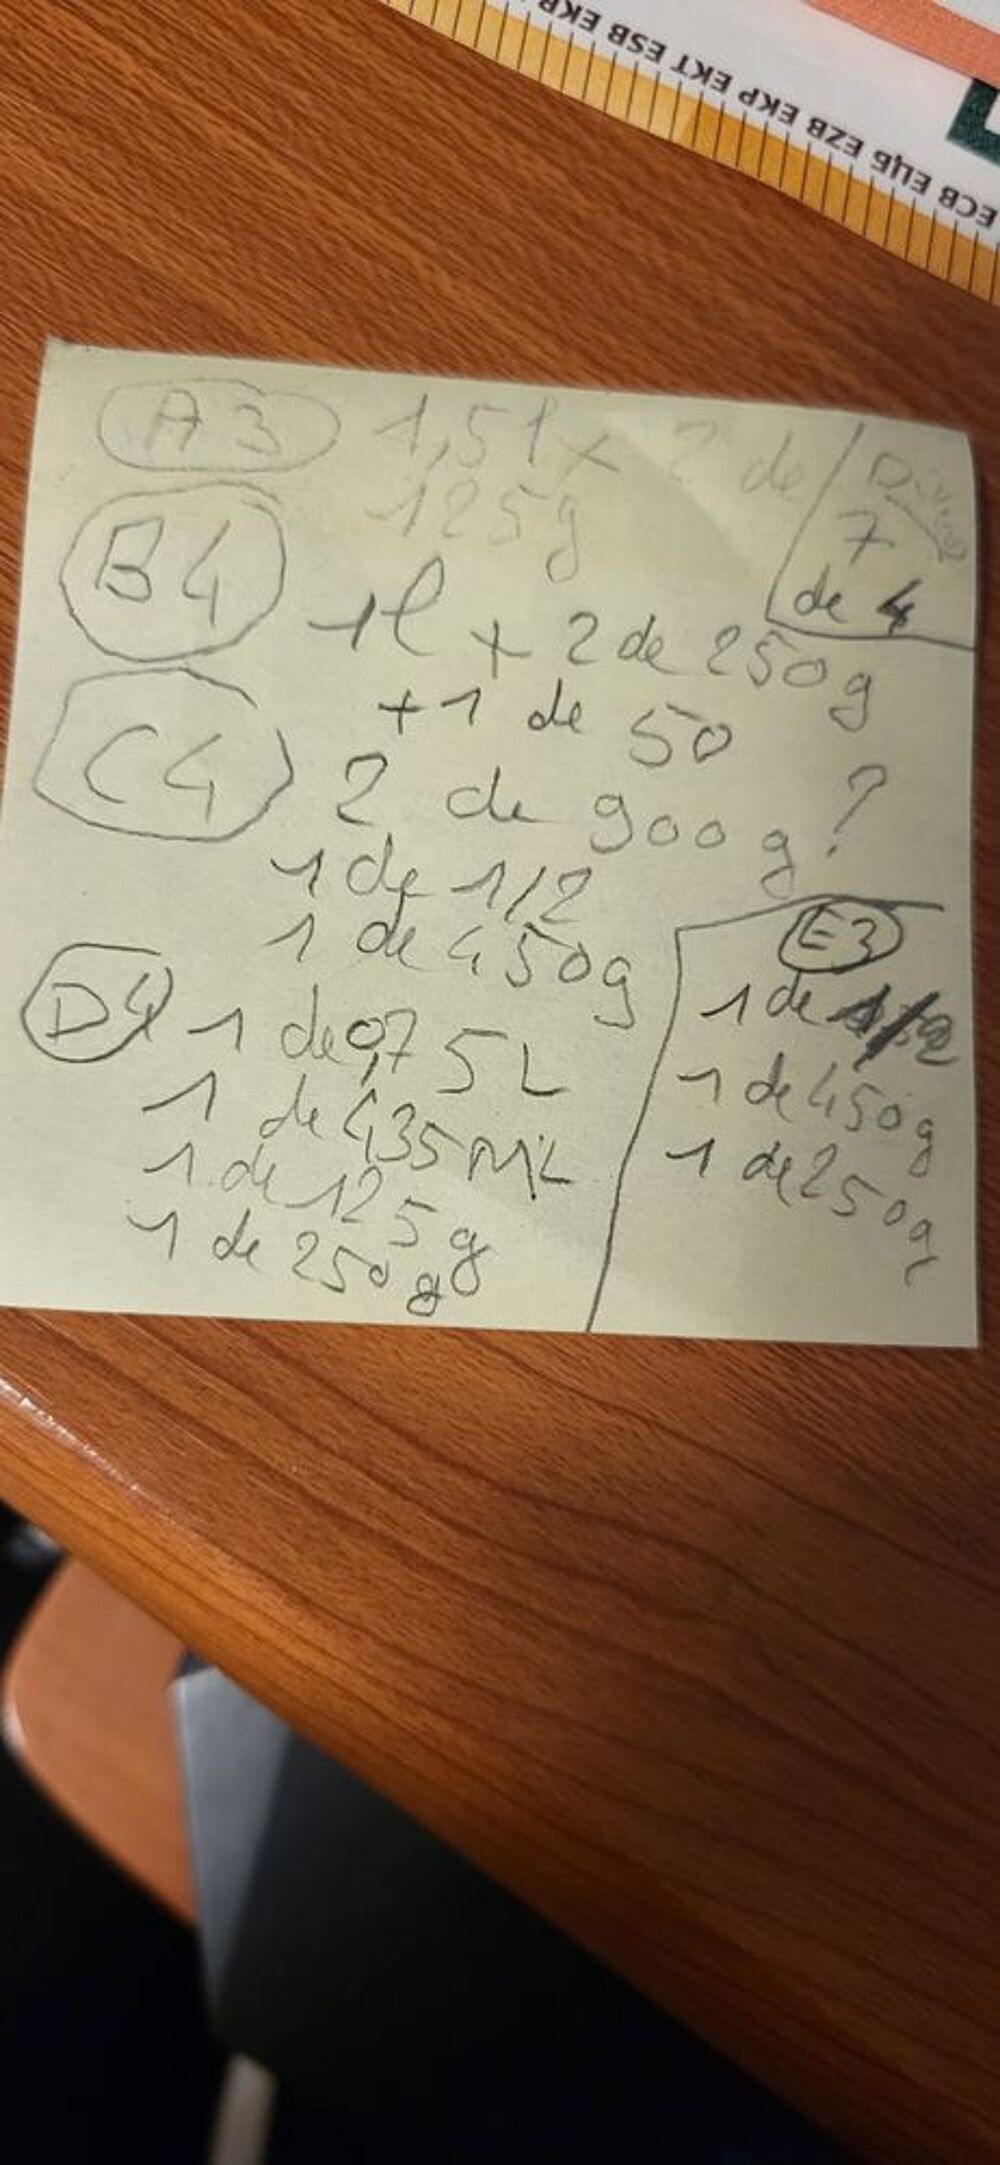 EKP EKT ESB EKP EZB ЕЦБ ECB
A3 1,5l x 2 de
125g
7
de 4
B4 1l + 2 de 250g
+1 de 50
C4 2 de 900g ?
1 de 1/2
1 de 450g
D4 1 de 0,75L
1 de 435ML
1 de 125g
1 de 250g
E3
1 de 1/2
1 de 450g
1 de 250g